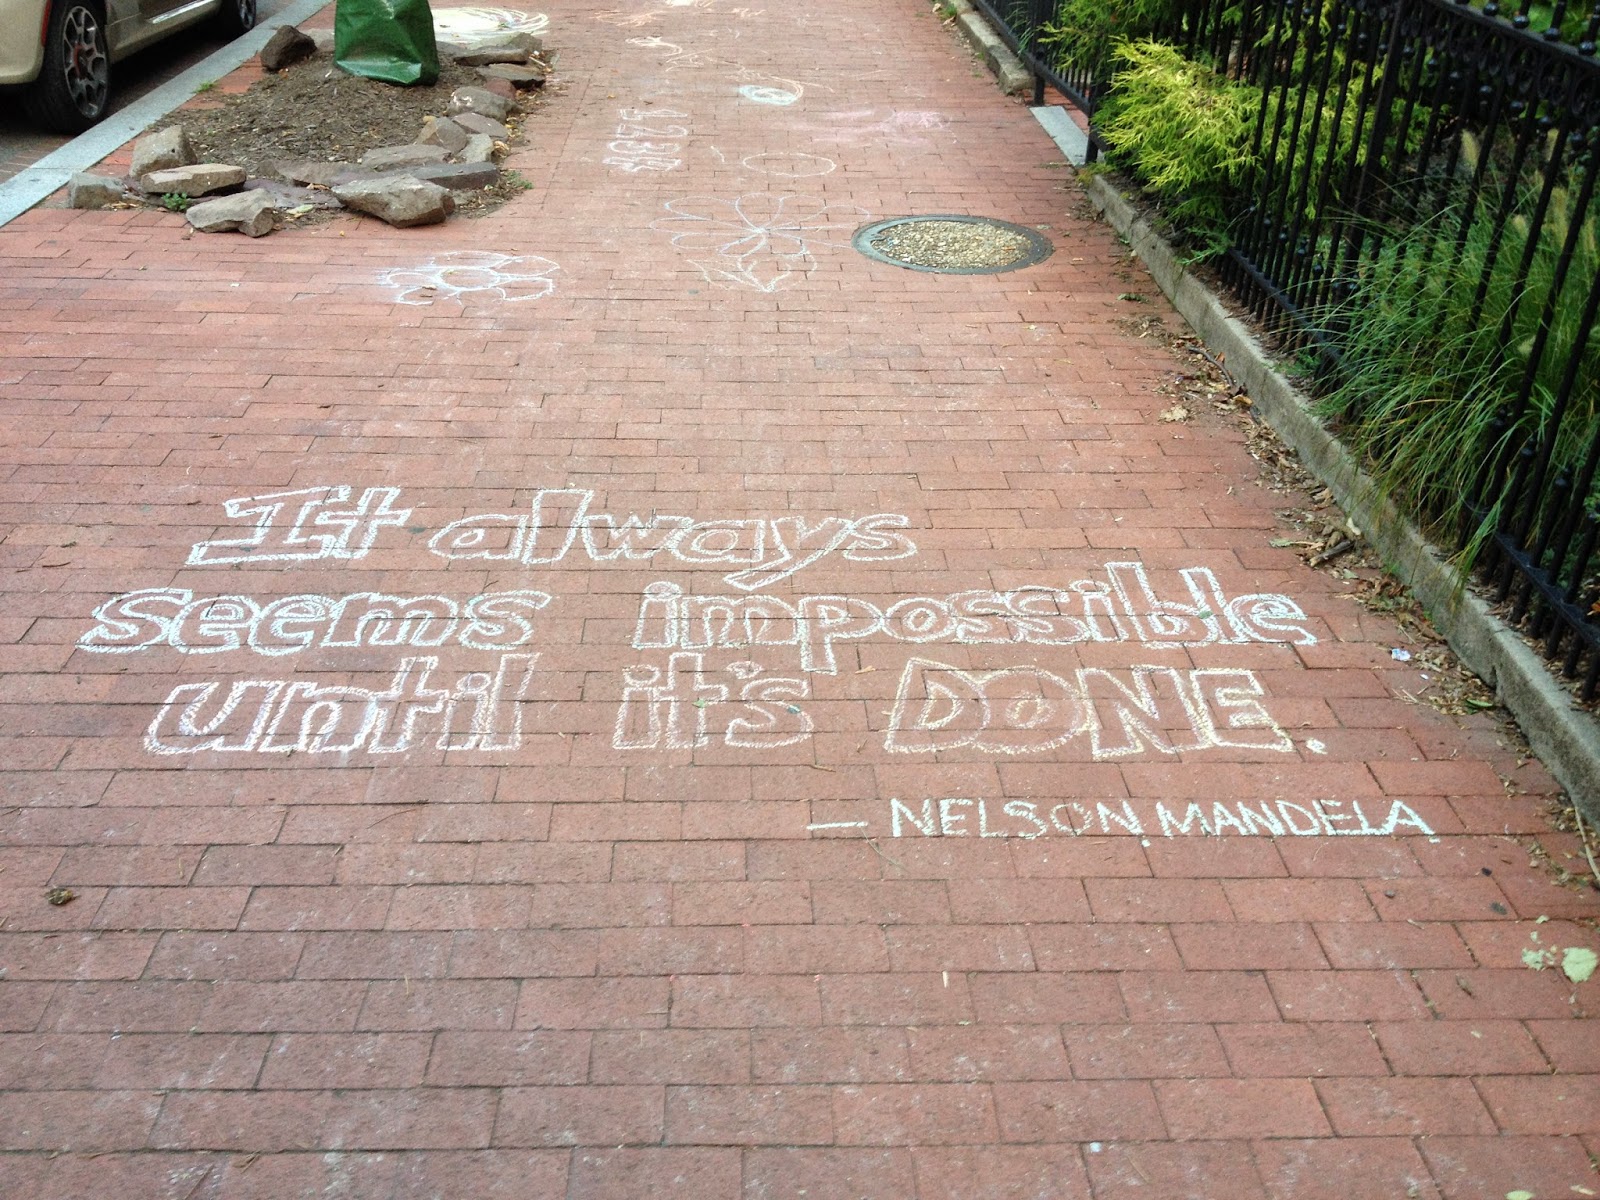 It always
seems impossible
until it's DONE.
— NELSON MANDELA